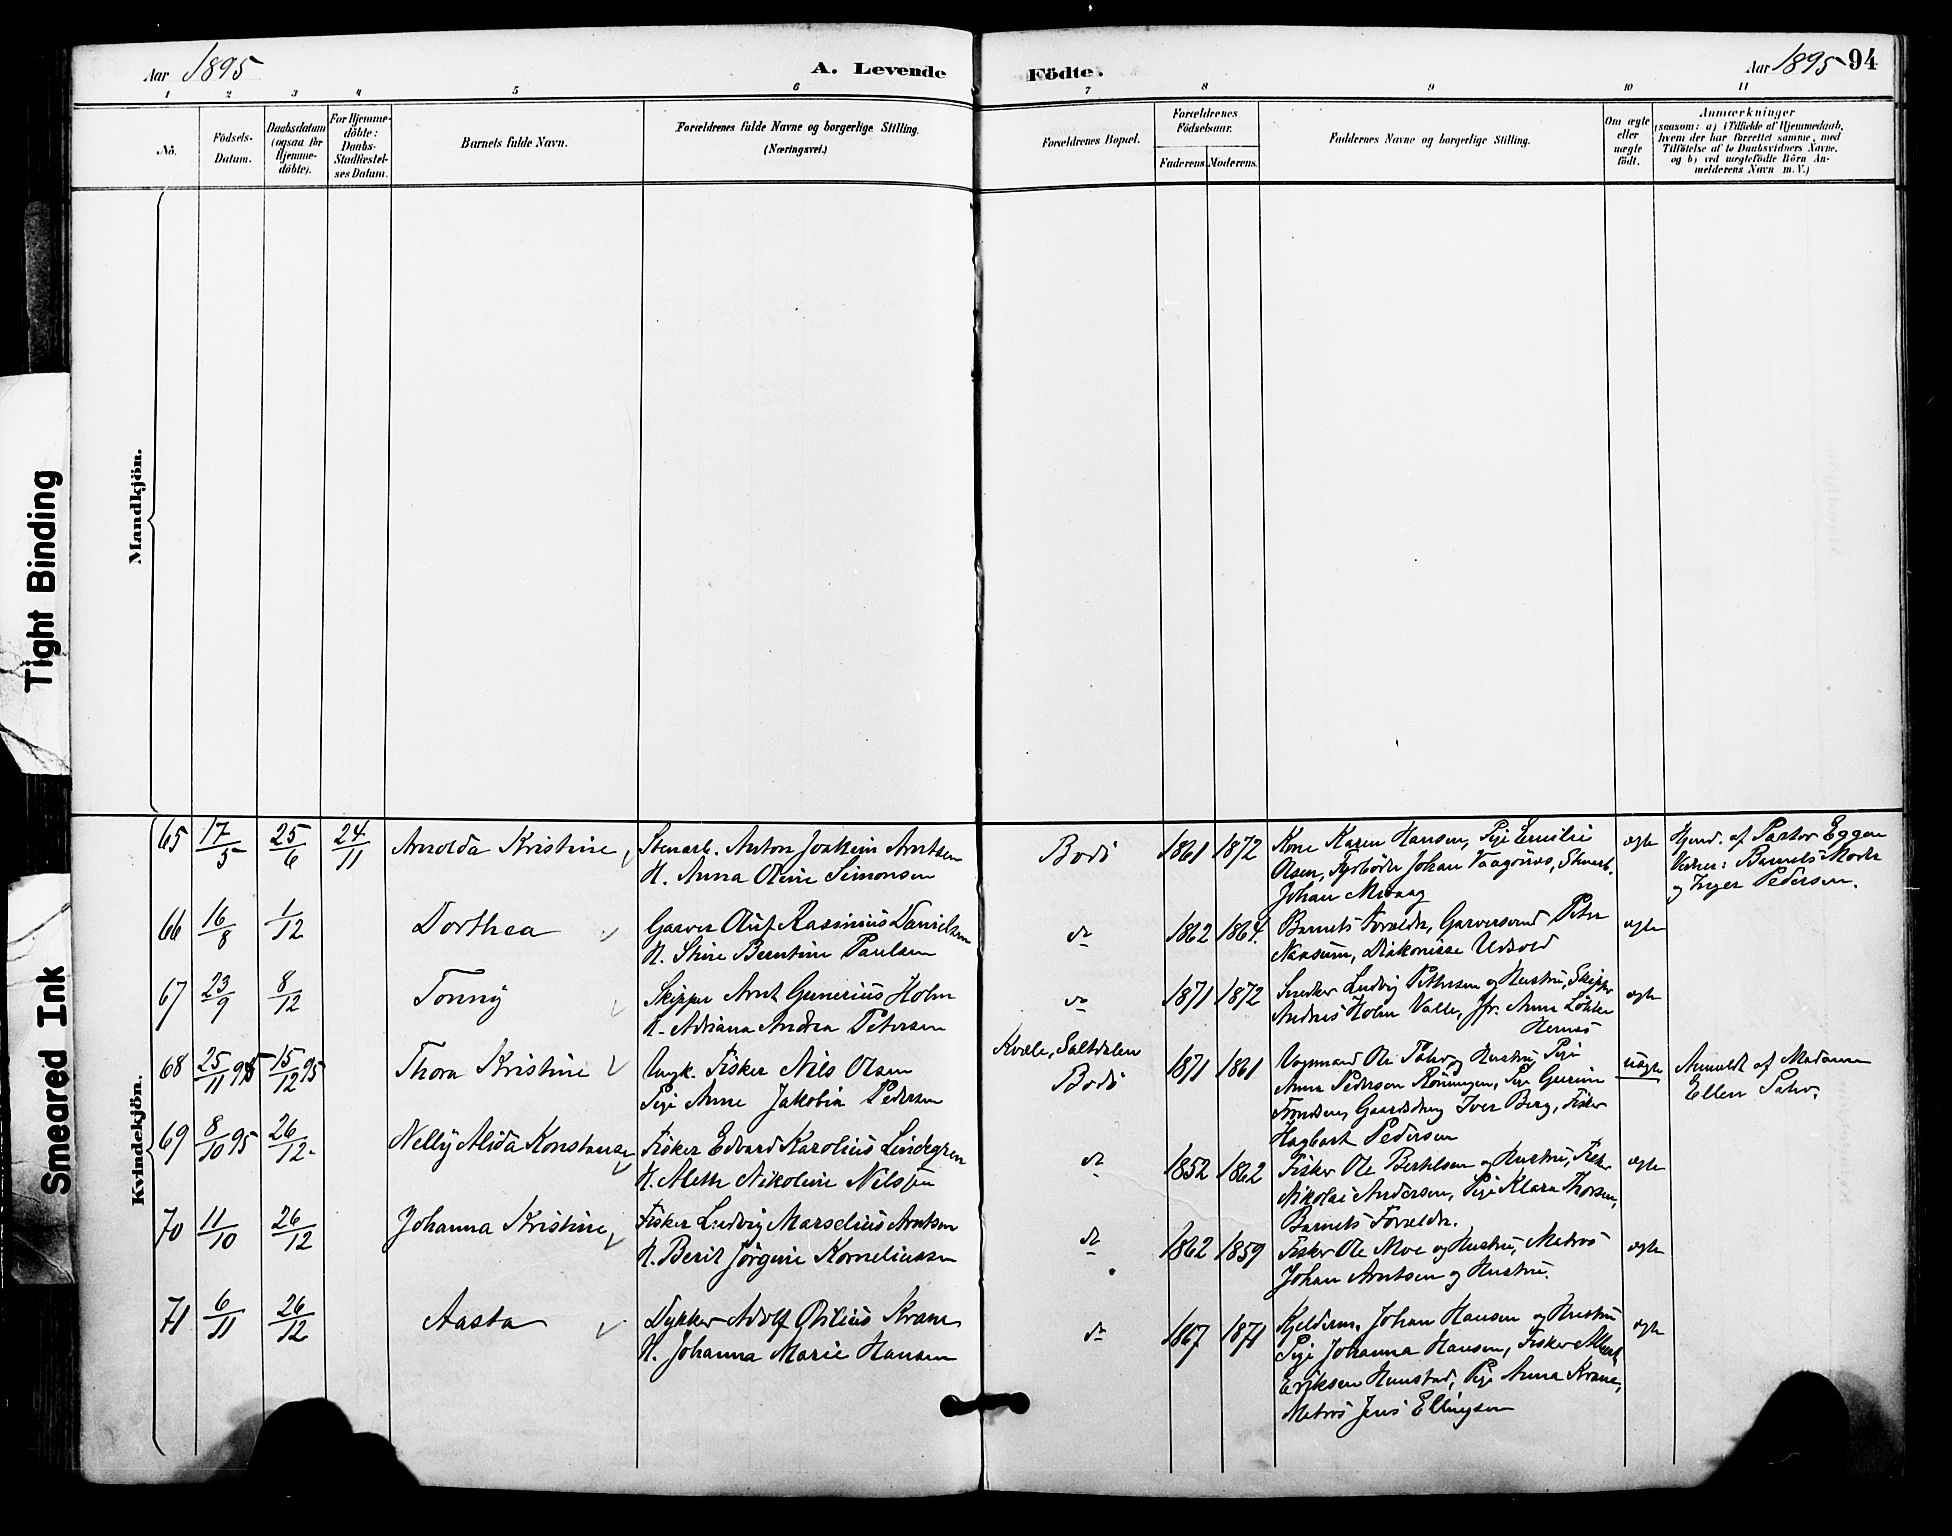 Aar 1895
A. Levende
Födte.
Aar 1895 94
1 2 3 4 5 6 7 8 9 10 11
No.
Födsels-
Datum.
Daabsdatum
(ogsaa for
Hjemme-
döbte).
For Hjemme-
döbte:
Daabs-
Stadfæstel-
ses Datum.
Barnets fulde Navn.
Forældrenes fulde Navne og borgerlige Stilling.
(Næringsvei.)
Forældrenes Bopæl.
Forældrenes
Födselsaar.
Faderens Moderens.
Faddernes Navne og borgerlige Stilling.
Om ægte
eller
uægte
födt.
Anmærkninger
(saasom: a) i Tilfælde af Hjemmedaab,
hvem der har forrettet samme, med
Tilföielse af to Daabsvidners Navne,
og b) ved uægtefödte Börn An-
melderens Navn m. V.)
Tight Binding
Smeared Ink
Mandkjön.
Kvindekjön.
65 17/5 25/6 24/11 Arnolda Kristine
Stenarb. Anton Joakim Arntsen
H. Anna Oline Simonsen
Bodö 1861 1872
Kone Karen Hansen, Pige Emilie
Olsen, Fyrböder Johan Vaagönes,
Johan
ægte
Hjemd. af Pastor Eggen
Vidner: Barnets Moder
og Inger Pedersen.
66 16/8 1/12 Dorthea
Garver Oluf Rasmus Danielsen
H. Stine Berntine Paulsen
do 1862 1864.
Barnets Forældre, Garversvend Peter
Naasum, Diakonisse Udvold
ægte
67 23/9 8/12 Tonny
Skipper Arnt Gunerius Holm
H. Adriana Andrea Petersen
do 1871 1872
Snedker Ludvig Pettersen og Hustru, Skipper
Andreas Holm Valle, Jfr. Anna Lökke
Hernes
ægte
68 25/11 95 15/12 95 Thora Kristine
Ungk. Fisker Nils Olsen
Pige Anne Jakobia Pedersen
Kvæle, Saltdalen
Bodö
1871 1861
Vognmand Ole og Hustru, Pige
Anna Pedersen Rönningen, Pige Gurine
Gaardsdreng Iver Berg, Fisker
Hagbart Pedersen
uægte
Anmeldt af Madame
Ellen
69 8/10 95 26/12. Nelly Alida Konstanse
Fisker Edvard Karolius Lindegren
H. Aleth Nikoline Nilssen
do 1852 1862
Fisker Ole Berthelsen og Hustru, Fisker
Nikolai Andersen, Pige Klara Thorsen,
Barnets Forældre.
ægte
70 11/10 26/12 Johanna Kristine
Fisker Ludvig Marselius Arntsen
H. Berit Jörgine Korneliussen
do 1862 1859
Fisker Ole Moe og Hustru, Matros
Johan Arntsen og Hustru.
ægte
71 6/11 26/12 Aasta
Dykker Adolf Otilius Krane
H. Johanna Marie Hansen
do 1867 1871
Kjelderm. Johan Hansen og Hustru
Pige Johanna Hansen, Fisker Albert
Eriksen Hunstad, Pige Anna Krane,
Matros Jens Ellingsen
ægte